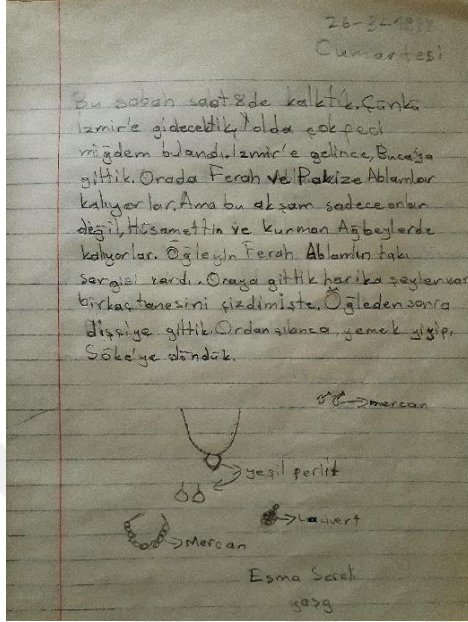 Cumartesi
Bu sabah saat 8de kalktık. Çünkü
İzmir'e gidecektik, Yolda çok feci
miğdem bulandı. İzmir'e gelince, Buca'ya
gittik. Orada Ferah ve Pakize Ablamlar
kalıyorlar. Ama bu akşam sadece onlar
değil, Hüsamettin ve Kurman Ağbeylerde
kalıyorlar. Öğleyin Ferah Ablamın takı
sergisi vardı. Oraya gittik harika şeyler var
birkaç tanesini çizdim işte. Öğleden sonra
dişçiye gittik. Ordan yemek yiyip,
Söke'ye döndük.
mercan
yeşil perlit
Lauvert
Mercan
Esma
yaş 9